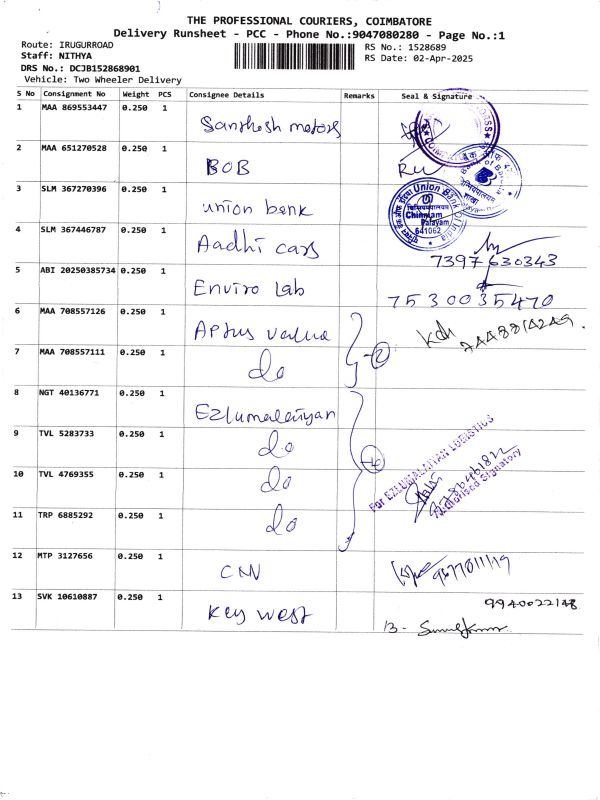 THE PROFESSIONAL COURIERS, COIMBATORE
Delivery Runsheet - PCC - Phone No.:9047080280 - Page No.:1
Route: IRUGURROAD
Staff: NITHYA
DRS No.: DCJB152868901
Vehicle: Two Wheeler Delivery
RS No.: 1528689
RS Date: 02-Apr-2025
S No Consignment No Weight PCS Consignee Details Remarks Seal & Signature
1 MAA 869553447 0.250 1 Santhosh motors
2 MAA 651270528 0.250 1 BOB
3 SLM 367270396 0.250 1 union bank
Union Bank of India
Chinniam
Palayam
641062
4 SLM 367446787 0.250 1 Aadhi cars
7397630343
5 ABI 20250385734 0.250 1 Enviro Lab
7530035470
6 MAA 708557126 0.250 1 Aptus value
7 MAA 708557111 0.250 1 do
2
8 NGT 40136771 0.250 1 Ezlumalaiyan
9 TVL 5283733 0.250 1 do
10 TVL 4769355 0.250 1 do
11 TRP 6885292 0.250 1 do
For EZLUMALAIYAN LOGISTICS
Authorised Signatory
12 MTP 3127656 0.250 1 CNN
9677011119
13 SVK 10610887 0.250 1 Key west
9940022148
13 -